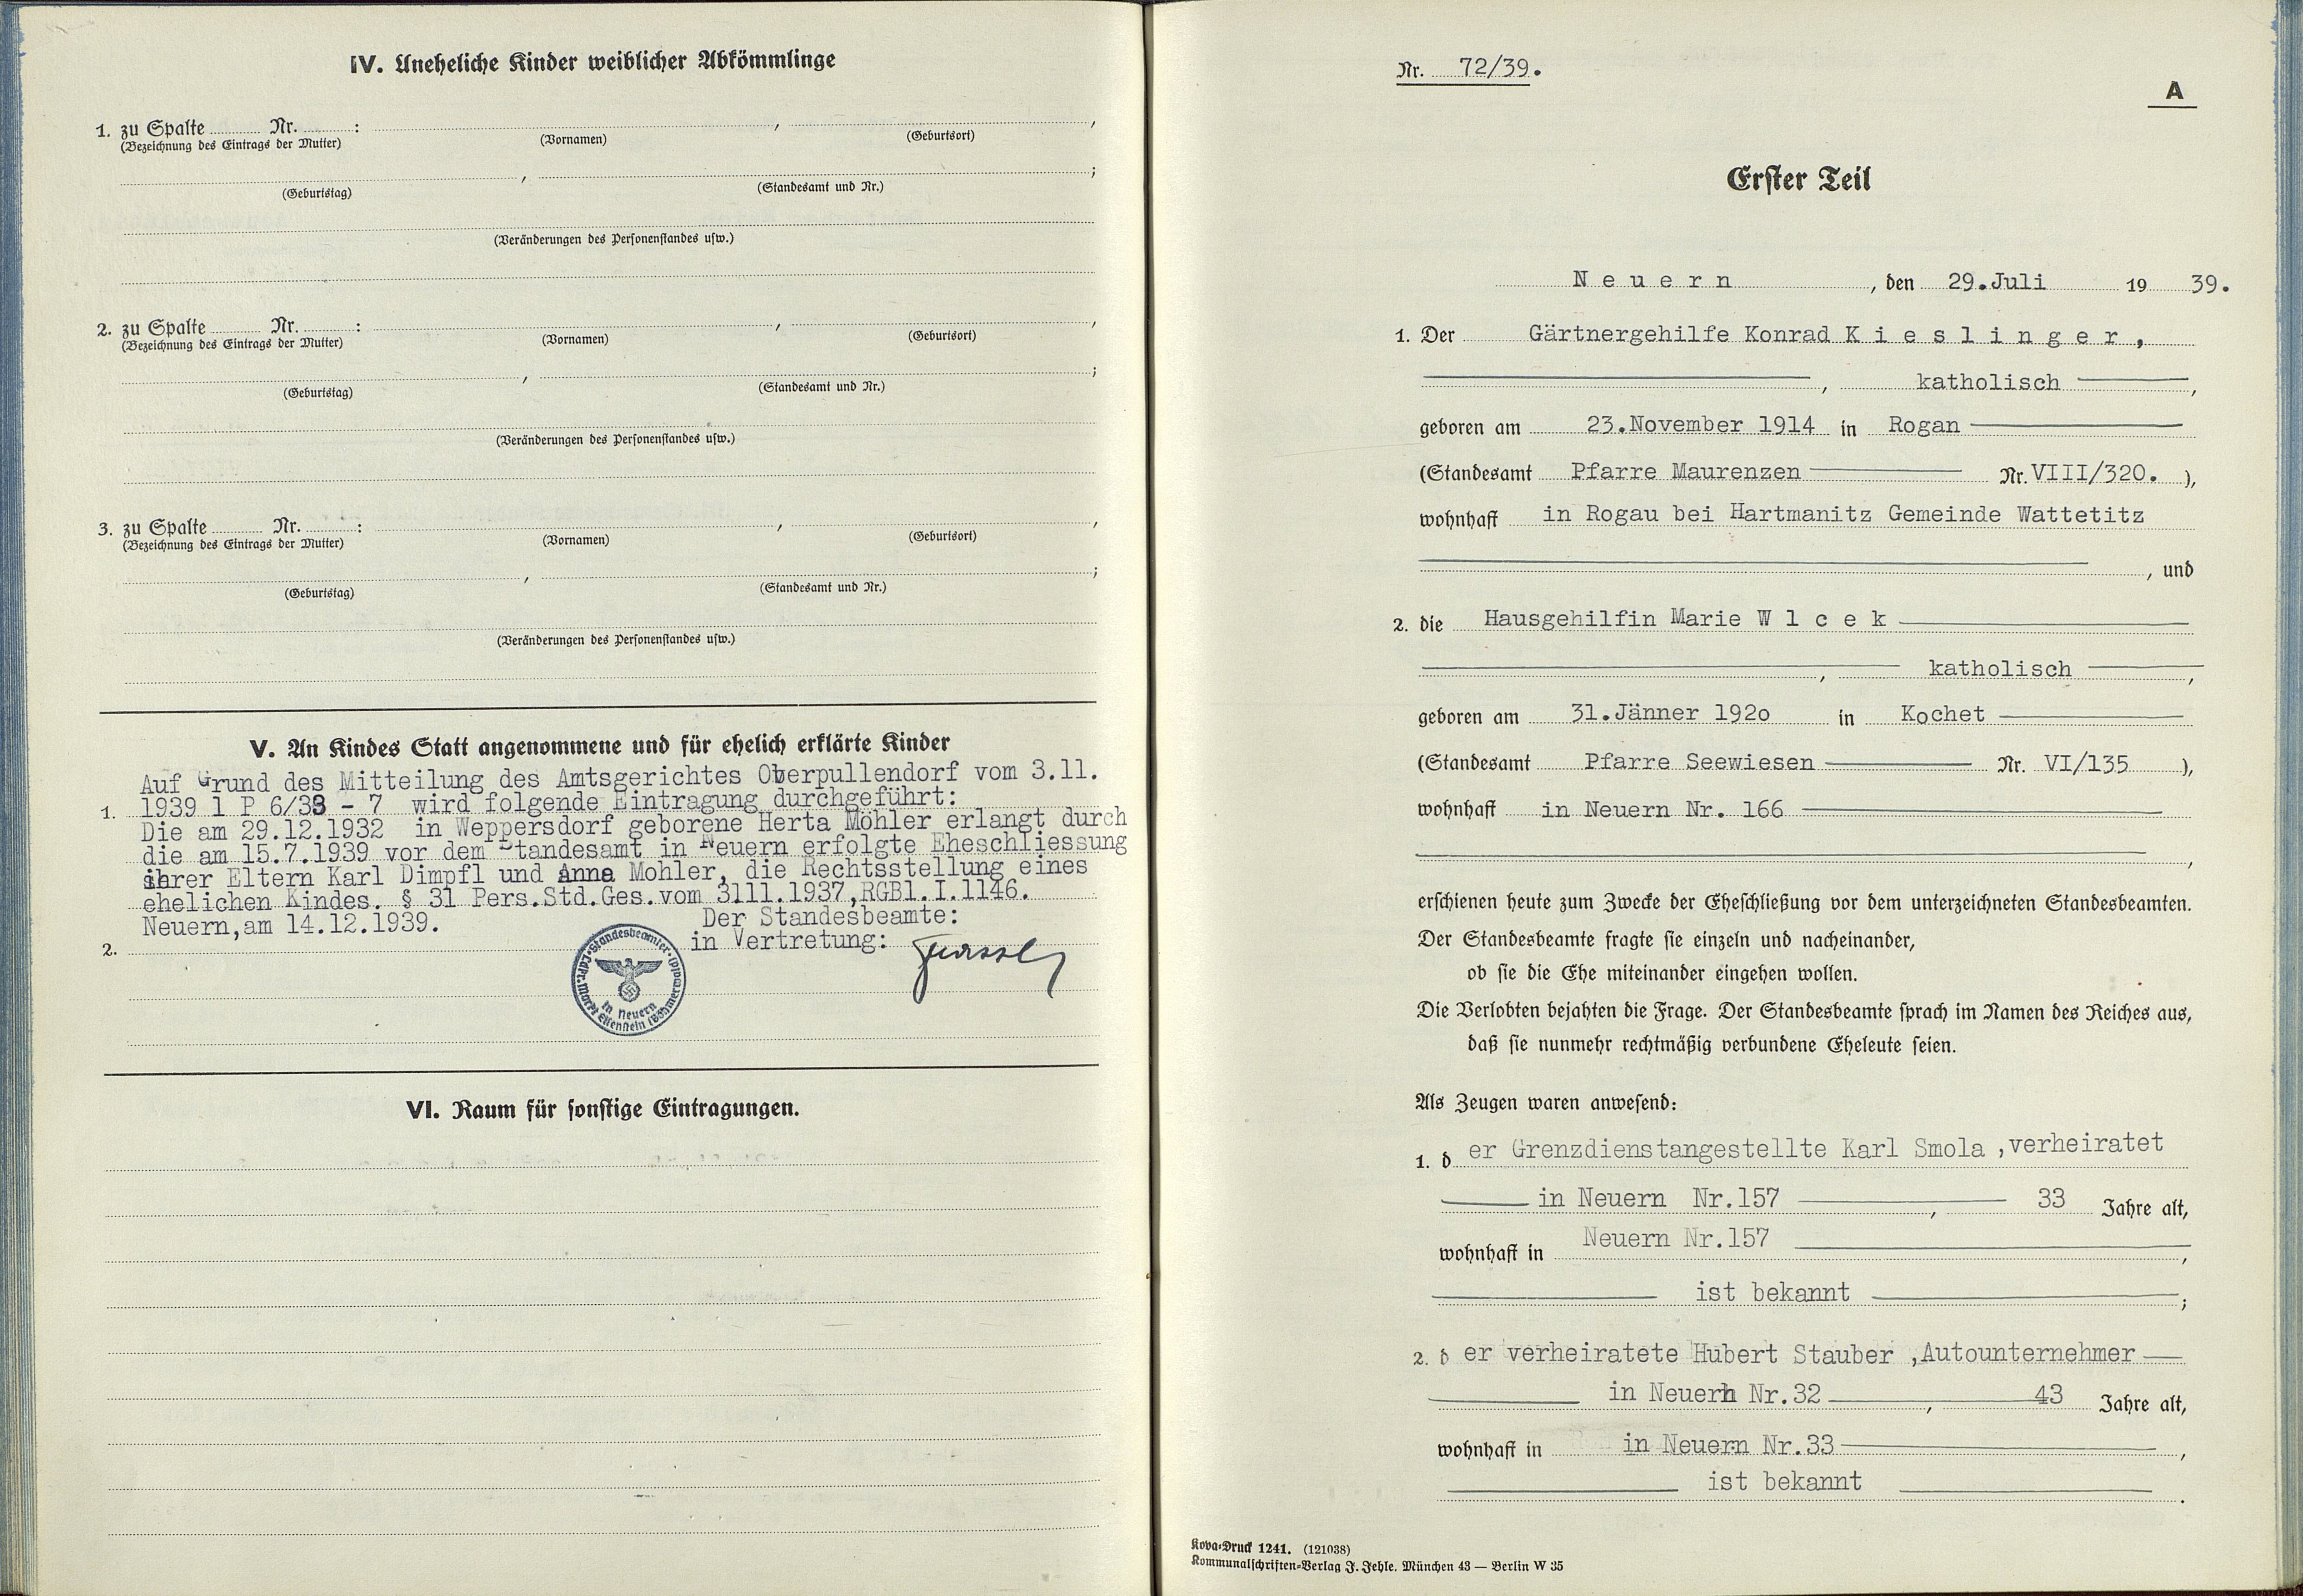 IV. Uneheliche Kinder weiblicher Abkömmlinge
1. zu Spalte Nr. : , ,
(Bezeichnung des Eintrags der Mutter) (Vornamen) (Geburtsort)
, ;
(Geburtstag) (Standesamt und Nr.)
(Veränderungen des Personenstandes usw.)
2. zu Spalte Nr. : , ,
(Bezeichnung des Eintrags der Mutter) (Vornamen) (Geburtsort)
, ;
(Geburtstag) (Standesamt und Nr.)
(Veränderungen des Personenstandes usw.)
3. zu Spalte Nr. : , ,
(Bezeichnung des Eintrags der Mutter) (Vornamen) (Geburtsort)
, ;
(Geburtstag) (Standesamt und Nr.)
(Veränderungen des Personenstandes usw.)
V. An Kindes Statt angenommene und für ehelich erklärte Kinder
Auf Grund des Mitteilung des Amtsgerichtes Oberpullendorf vom 3.11.
1. 1939 1 P 6/39 - 7 wird folgende Eintragung durchgeführt:
Die am 29.12.1932 in Weppersdorf geborene Herta Möhler erlangt durch
die am 15.7.1939 vor dem Standesamt in Neuern erfolgte Eheschliessung
ihrer Eltern Karl Dimpfl und Anna Mohler, die Rechtsstellung eines
ehelichen Kindes. § 31 Pers.Std.Ges.vom 3111.1937,RGBl.I.1146.
Neuern,am 14.12.1939. Der Standesbeamte:
2. in Vertretung:
Standesbeamter
in Neuern
Markt Eisenstein
VI. Raum für sonstige Eintragungen.
Nr. 72/39.
A
Erster Teil
Neuern, den 29.Juli 19 39.
1. Der Gärtnergehilfe Konrad Kieslinger,
, katholisch ,
geboren am 23.November 1914 in Rogan
(Standesamt Pfarre Maurenzen Nr. VIII/320. ),
wohnhaft in Rogau bei Hartmanitz Gemeinde Wattetitz
, und
2. die Hausgehilfin Marie Wlcek
, katholisch ,
geboren am 31.Jänner 192o in Kochet
(Standesamt Pfarre Seewiesen Nr. VI/135 ),
wohnhaft in Neuern Nr. 166
,
erschienen heute zum Zwecke der Eheschließung vor dem unterzeichneten Standesbeamten.
Der Standesbeamte fragte sie einzeln und nacheinander,
ob sie die Ehe miteinander eingehen wollen.
Die Verlobten bejahten die Frage. Der Standesbeamte sprach im Namen des Reiches aus,
daß sie nunmehr rechtmäßig verbundene Eheleute seien.
Als Zeugen waren anwesend:
1. d er Grenzdienstangestellte Karl Smola ,verheiratet
in Neuern Nr.157 , 33 Jahre alt,
wohnhaft in Neuern Nr.157 ,
ist bekannt ;
2. d er verheiratete Hubert Stauber ,Autounternehmer
in Neuern Nr.32 , 43 Jahre alt,
wohnhaft in in Neuern Nr.33 ,
ist bekannt .
Kova-Druck 1241. (121038)
Kommunalschriften-Verlag J. Jehle. München 43 — Berlin W 35